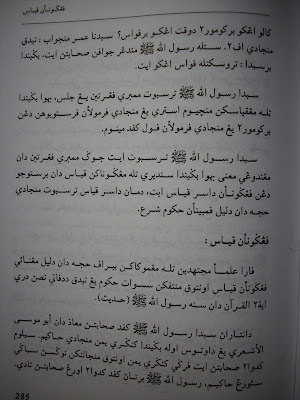 ففݢوناءن قياس
كالو اڠكو بركومور٢ دوقت اڠكو برفواس؟ سيدنا عمر منجواب : تيدق
منجادي اف٢. ستله رسول الله ﷺ مندڠر جوافن صحابتن ايت، بݢيندا
برسبدا : تروسكنله فواس اڠكو ايت.
سبدا رسول الله ﷺ ترسبوت ممبري فڠرتين يڠ جلس، بهوا بݢيندا
تله مڠقياسكن منچيوم استري يڠ منجادي فرمولأن فرستوبوهن دڠن
بركومور٢ يڠ منجادي فرمولأن فول كفد مينوم.
سبدا رسول الله ﷺ ترسبوت ايت جوݢ ممبري فڠرتين دان
مڠندوڠي معنى بهوا بݢيندا سنديري تله مڠݢوناكن قياس دان برستوجو
دڠن فڠݢونأن داسر قياس ايت، دمان داسر قياس ترسبوت منجادي
حجه دان دليل فمبينأن حكوم شرع.
فڠݢونأن قياس :
فارا علماء مجتهدين تله مڠموكاكن ببراف حجه دان دليل مڠنائي
فڠݢونأن قياس اونتوق منتفكن سسوات حكوم يڠ تيدق ددفاتي نصن دري
اية٢ القرآن دان سنه رسول الله ﷺ (حديث).
دانتاران سبدا رسول الله ﷺ كفد صحابتن معاذ دان أبو موسى
الأشعري يڠ داوتوس اوله بݢيندا كنݢري يمن منجادي حاكيم. سبلوم
كدوا٢ صحابتن ايت فرݢي كنݢري يمن اونتوق منجالنكن توݢسن سباݢي
سئورڠ حاكيم، رسول الله ﷺ برتان كفد كدوا٢ اورڠ صحابتن تادي.
285